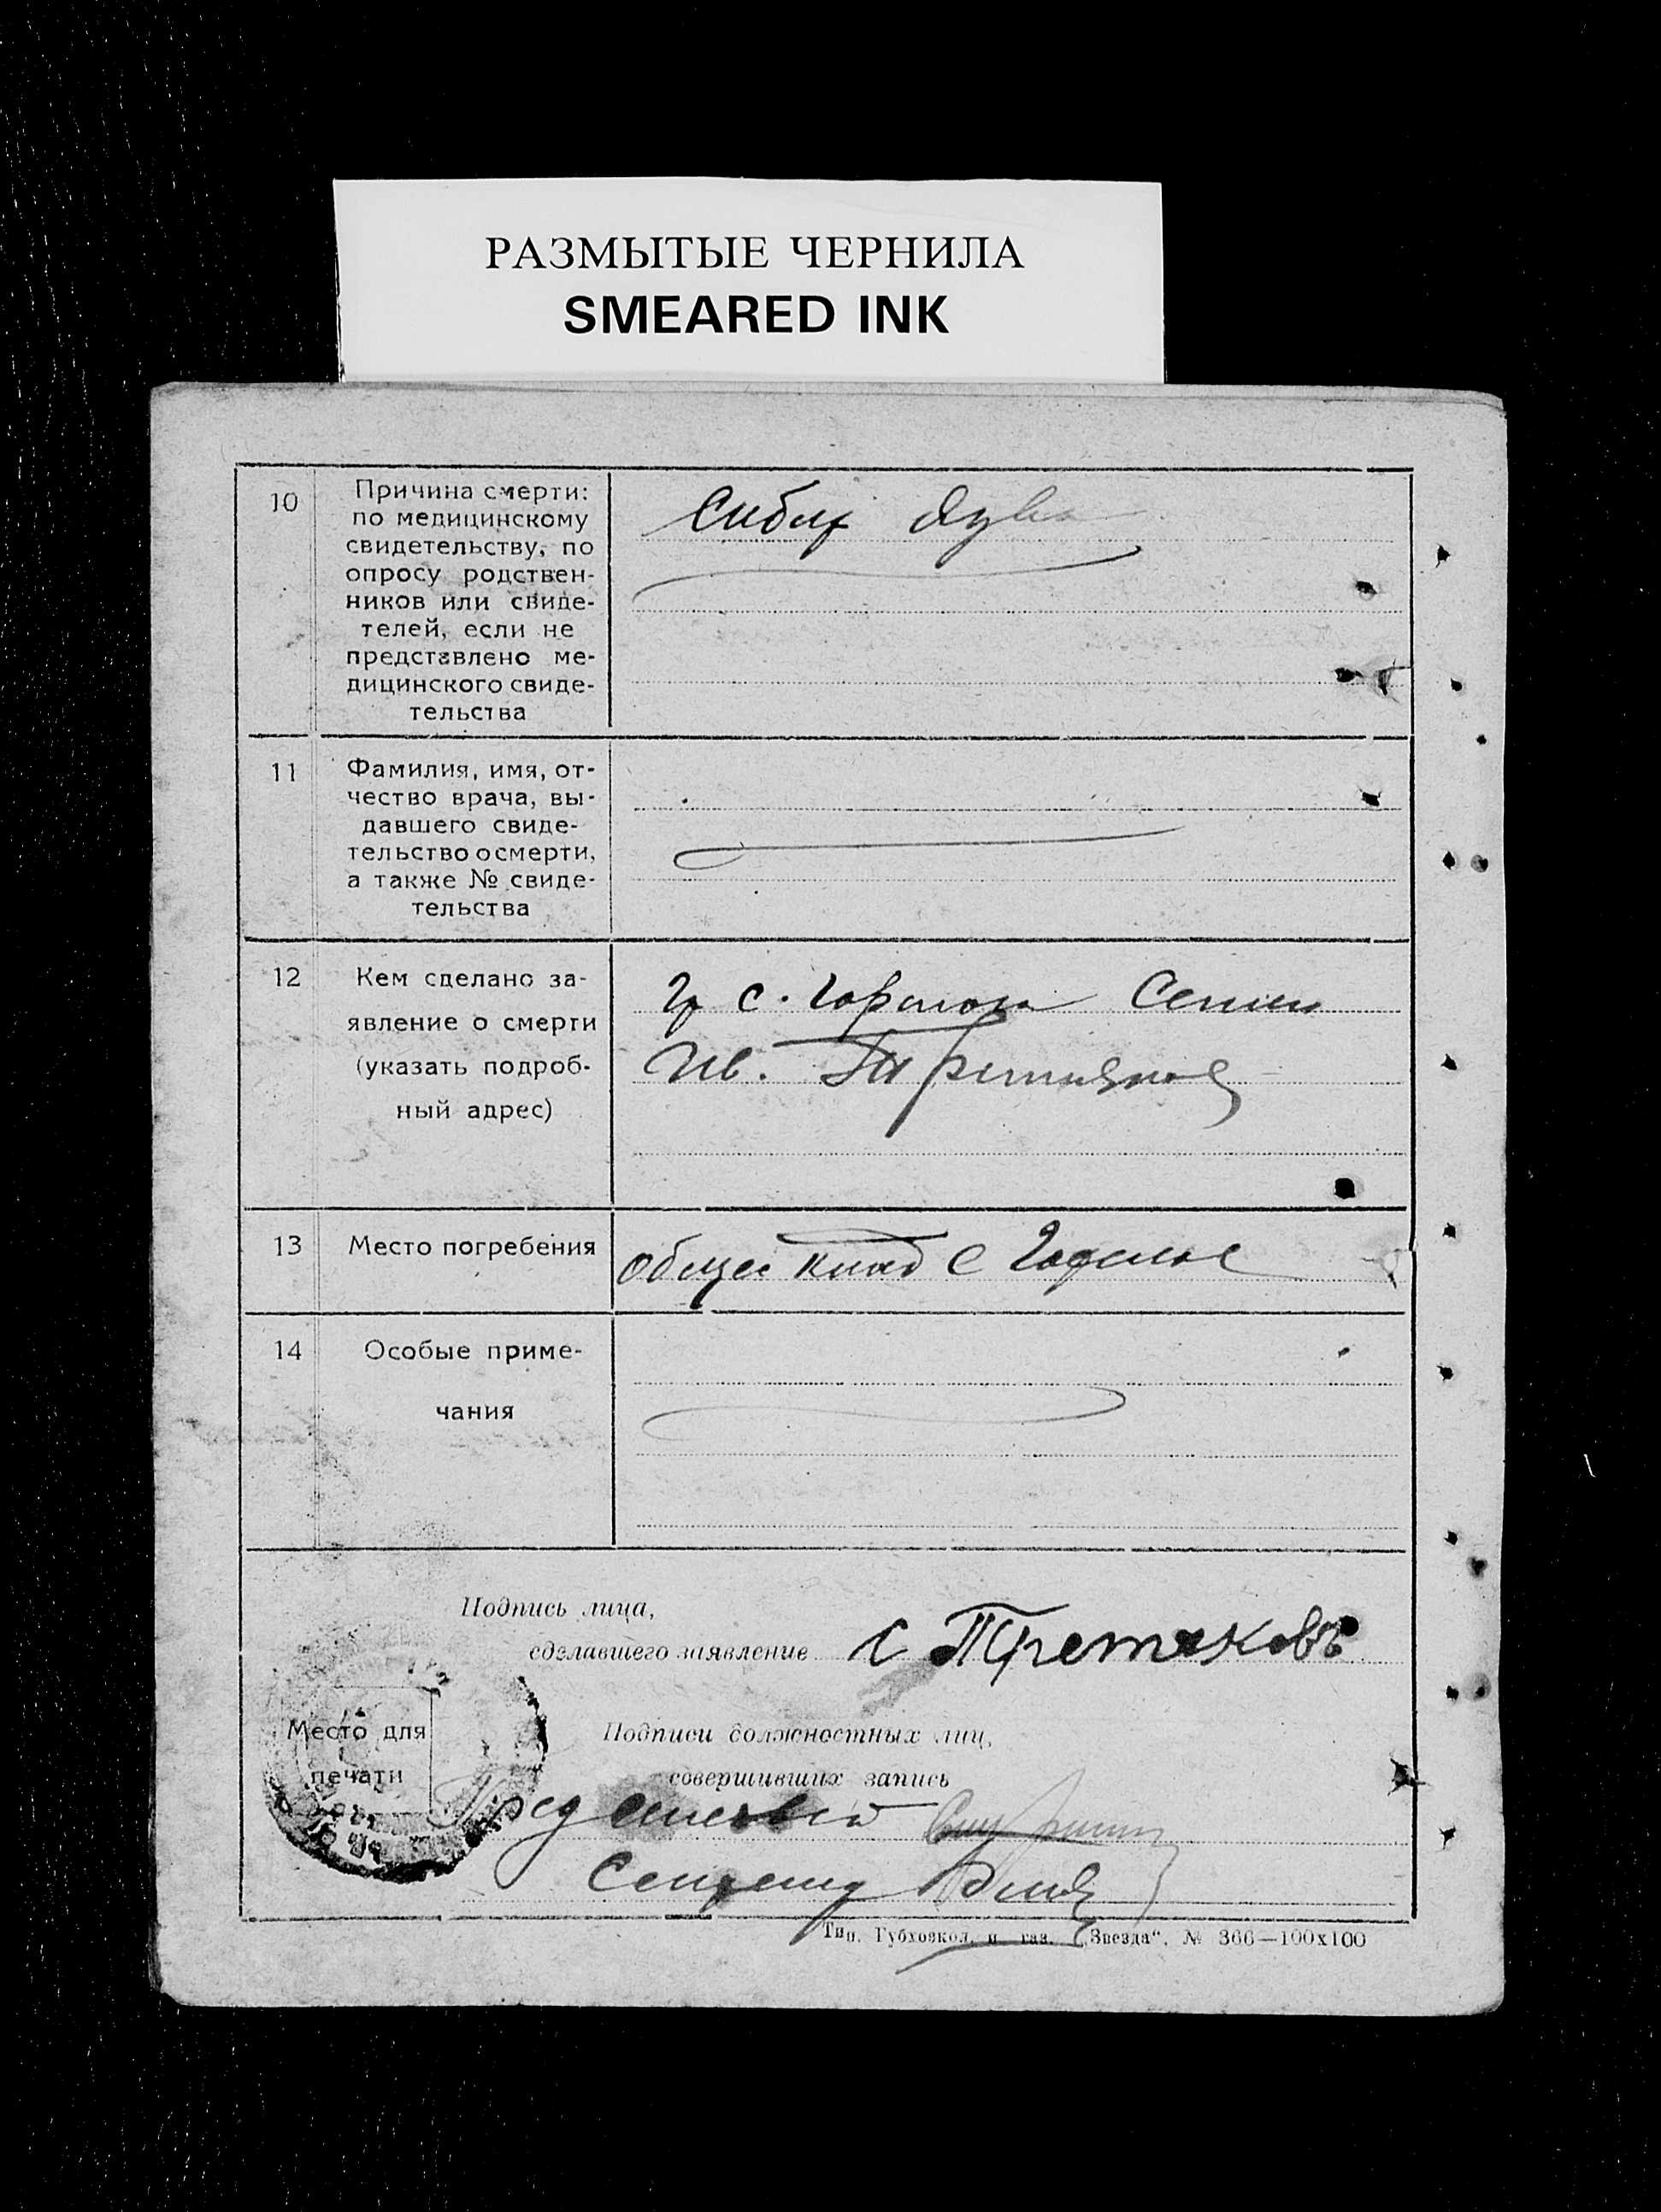 РАЗМЫТЫЕ ЧЕРНИЛА
SMEARED INK
10
Причина смерти:
по медицинскому
свидетельству, по
опросу родствен-
ников или свиде-
телей, если не
представлено ме-
дицинского свиде-
тельства
Сибир язва
11
Фамилия, имя, от-
чество врача, вы-
давшего свиде-
тельство о смерти,
а также № свиде-
тельства
12
Кем сделано за-
явление о смерти
(указать подроб-
ный адрес)
Гр с.
Ив. Третьяков
13
Место погребения
общее клад с
14
Особые приме-
чания
Подпись лица,
сделавшего заявление
С Третяковъ
Место для
печати
Подписи должностных лиц,
совершивших запись
Пред сельсовета
Секретарь
Тип. Губховкол. и газ. „Звезда“. № 366—100х100